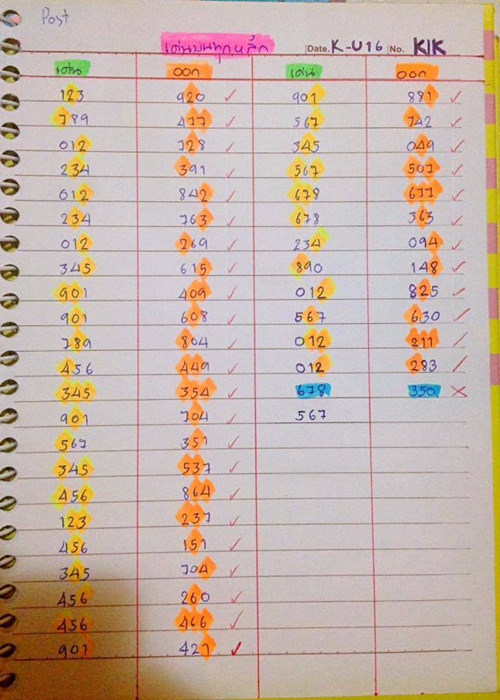 Post
เด่นบนทุกหลัก Date. K-U16 No. KIK
เด่น ออก เด่น ออก
123 920 ✓ 901 881 ✓
789 477 ✓ 567 742 ✓
012 728 ✓ 345 049 ✓
234 391 ✓ 567 507 ✓
012 842 ✓ 678 677 ✓
234 763 ✓ 678 363 ✓
012 269 ✓ 234 094 ✓
345 615 ✓ 890 148 ✓
901 409 ✓ 012 825 ✓
901 608 ✓ 567 630 ✓
789 804 ✓ 012 211 ✓
456 449 ✓ 012 283 ✓
345 354 ✓ 678 350 ✗
901 704 ✓ 567
567 351 ✓
345 537 ✓
456 864 ✓
123 237 ✓
456 151 ✓
345 704 ✓
456 260 ✓
456 466 ✓
901 421 ✓